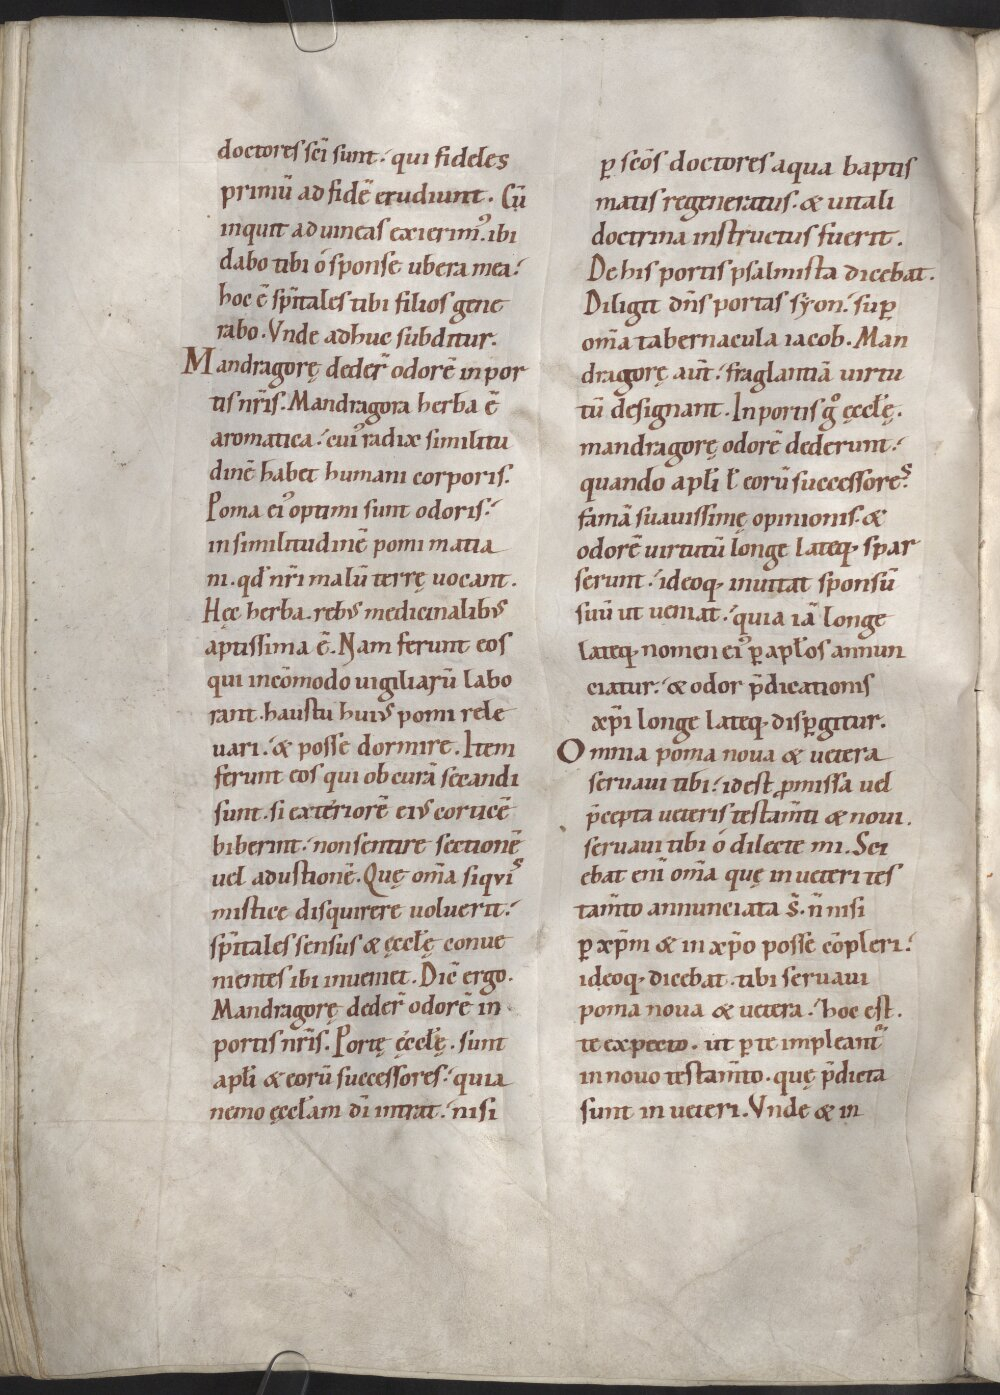 doctores sc̄i sunt. qui fideles
primū ad fidē erudiunt. Cū
inquit ad uineas exierim᷒. ibi
dabo tibi ó sponse ubera mea.
hoc ē sp̄itales tibi filios gene
rabo. Vnde adhuc subditur.
Mandragorę deder̄ odorē in por
tis nr̄is. Mandragora herba ē
aromatica. cui᷒ radix similitu
dinē habet humani corporis.
Poma ei᷒ optimi sunt odoris.
in similitudinē pomi matia
ni. qd̄ nr̄i malū terrę uocant.
Hęc herba. rebꝰ medicinalibꝰ
aptissima ē. Nam ferunt eos
qui incōmodo uigiliarū labo
rant. haustu huiꝰ pomi rele
uari. & posse dormire. Item
ferunt eos qui ob curā secandi
sunt. si exteriorē eiꝰ corticē
biberint. non sentire sectionē
uel adustionē. Quę om̄a siquis
mistice disquirere uoluerit.
sp̄itales sensus & ęccl̄ę conue
nientes ibi inueniet. Dic̄ ergo.
Mandragorę deder̄ odorē in
portis nr̄is. Portę ęccl̄ę. sunt
apl̄i & eorū successores. quia
nemo ęccl̄am dī intrat. nisi
ꝑ sc̄os doctores aqua baptis
matis regeneratus. & uitali
doctrina instructus fuerit.
De his portis psalmista dicebat.
Diligit dn̄s portas syon. suꝑ
om̄a tabernacula iacob. Man
dragorę aut̄. fraglantiā uirtu
tū designant. In portis gͦ ęccl̄ę.
mandragorę odorē dederunt.
quando apl̄i ł eorū successores.
famā suauissimę opinionis. &
odorē uirtutū longe lateq; spar
serunt. ideoq; inuitat sponsū
suū ut ueniat. quia iā longe
lateq; nomen ei᷒ ꝑ apl̄os annun
ciatur. & odor p̄dicationis
xp̄i longe lateq; disꝑgitur.
Omnia poma noua & uetera
seruaui tibi. id est ꝓmissa uel
p̄cepta ueteris testam̄ti & noui.
seruaui tibi ó dilecte mi. Sci
ebat enī om̄a quę in ueteri tes
tam̄to annunciata s̄. n̄ nisi
ꝑ xp̄m & in xp̄o posse cōpleri.
ideoq; dicebat. tibi seruaui
poma noua & uetera. hoc est.
te expecto. ut ꝑ te impleant᷑
in nouo testam̄to. quę p̄dicta
sunt in ueteri. Vnde & in